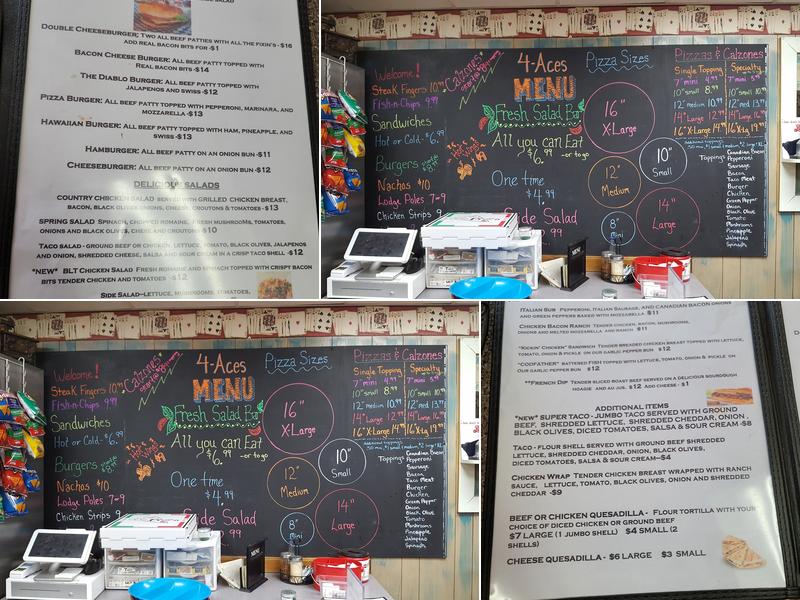 Double Cheeseburger; Two all beef patties with all the fixin's - $16
add real bacon bits for $1
Bacon Cheese Burger: All beef patty topped with
real bacon bits - $14
The Diablo Burger: All beef patty topped with
jalapenos and swiss - $12
Pizza Burger: All beef patty topped with pepperoni, marinara, and
mozzarella - $13
Hawaiian Burger: All beef patty topped with ham, pineapple, and
swiss - $13
Hamburger: All beef patty on an onion bun - $11
Cheeseburger: All beef patty on an onion bun - $12
Delicious Salads
Country Chicken Salad served with grilled chicken breast,
bacon, black olives, onions, cheese, croutons & tomatoes - $13
Spring Salad Spinach, chopped romaine, fresh mushrooms, tomatoes,
onions and black olives, cheese, and croutons $10
Taco Salad - ground beef or chicken, lettuce, tomato, black olives, jalapenos
and onion, shredded cheese, salsa and sour cream in a crisp taco shell - $12
"New" BLT Chicken Salad Fresh romaine and spinach topped with crispy bacon
bits tender chicken and tomatoes - $12
Side Salad—lettuce, mushrooms, tomatoes,
Welcome!
Steak Fingers 10.99
Fish-n-Chips 9.99
Sandwiches
Hot or Cold - $6.99
Burgers
Nachos $10
Lodge Poles 7-9
Chicken Strips 9
Calzones
4-Aces
MENU
Fresh Salad Bar
All you Can Eat
$6.99 -or to go
One time
$4.99
Side Salad
Pizza Sizes
16"
X-Large
12"
Medium
10"
Small
14"
Large
8"
Mini
Pizzas & Calzones
Single Topping
Specialty
7" mini 4.99
10" small 8.99
12" medium 10.99
14" Large 12.99
16" X-Large 14.99
Toppings
Canadian Bacon
Pepperoni
Sausage
Bacon
Taco Meat
Burger
Chicken
Green Pepper
Onion
Black Olive
Tomato
Mushrooms
Pineapple
Jalapeño
Spinach
MENU
Welcome!
Steak Fingers 10.99
Fish-n-Chips 9.99
Sandwiches
Hot or Cold - $6.99
Burgers
Nachos $10
Lodge Poles 7-9
Chicken Strips 9
Calzones
4-Aces
MENU
Fresh Salad Bar
All you Can Eat
$6.99 -or to go
One time
$4.99
Side Salad
Pizza Sizes
16"
X-Large
12"
Medium
10"
Small
14"
Large
8"
Mini
Pizzas & Calzones
Single Topping
Specialty
7" mini 4.99
10" small 8.99
12" medium 10.99
14" Large 12.99
16" X-Large 14.99
Toppings
Canadian Bacon
Pepperoni
Sausage
Bacon
Taco Meat
Burger
Chicken
Green Pepper
Onion
Black Olive
Tomato
Mushrooms
Pineapple
Jalapeño
Spinach
MENU
Italian Sub Pepperoni, Italian Sausage, and Canadian bacon onions
and green peppers baked with mozzarella $11
Chicken Bacon Ranch Tender chicken, bacon, mushrooms,
onions and melted mozzarella and ranch $11
"Kickin' Chicken" Sandwich Tender breaded chicken breast topped with lettuce,
tomato, onion & pickle on our garlic pepper bun $12
"Codfather" Battered fish topped with lettuce, tomato, onion & pickle on
our garlic pepper bun $12
**French Dip Tender sliced roast beef served on a delicious sourdough
hoagie and au jus. $12 Add cheese - $1
Additional Items
"New" Super Taco - Jumbo taco served with ground
beef, shredded lettuce, shredded cheddar, onion,
black olives, diced tomatoes, salsa & sour cream - $8
Taco - Flour shell served with ground beef shredded
lettuce, shredded cheddar, onion, black olives,
diced tomatoes, salsa & sour cream—$4
Chicken Wrap Tender chicken breast wrapped with ranch
sauce, lettuce, tomato, black olives, onion and shredded
cheddar - $9
Beef or Chicken Quesadilla - Flour tortilla with your
choice of diced chicken or ground beef
$7 Large (1 jumbo shell) $4 Small (2
shells)
Cheese Quesadilla - $6 Large $3 Small